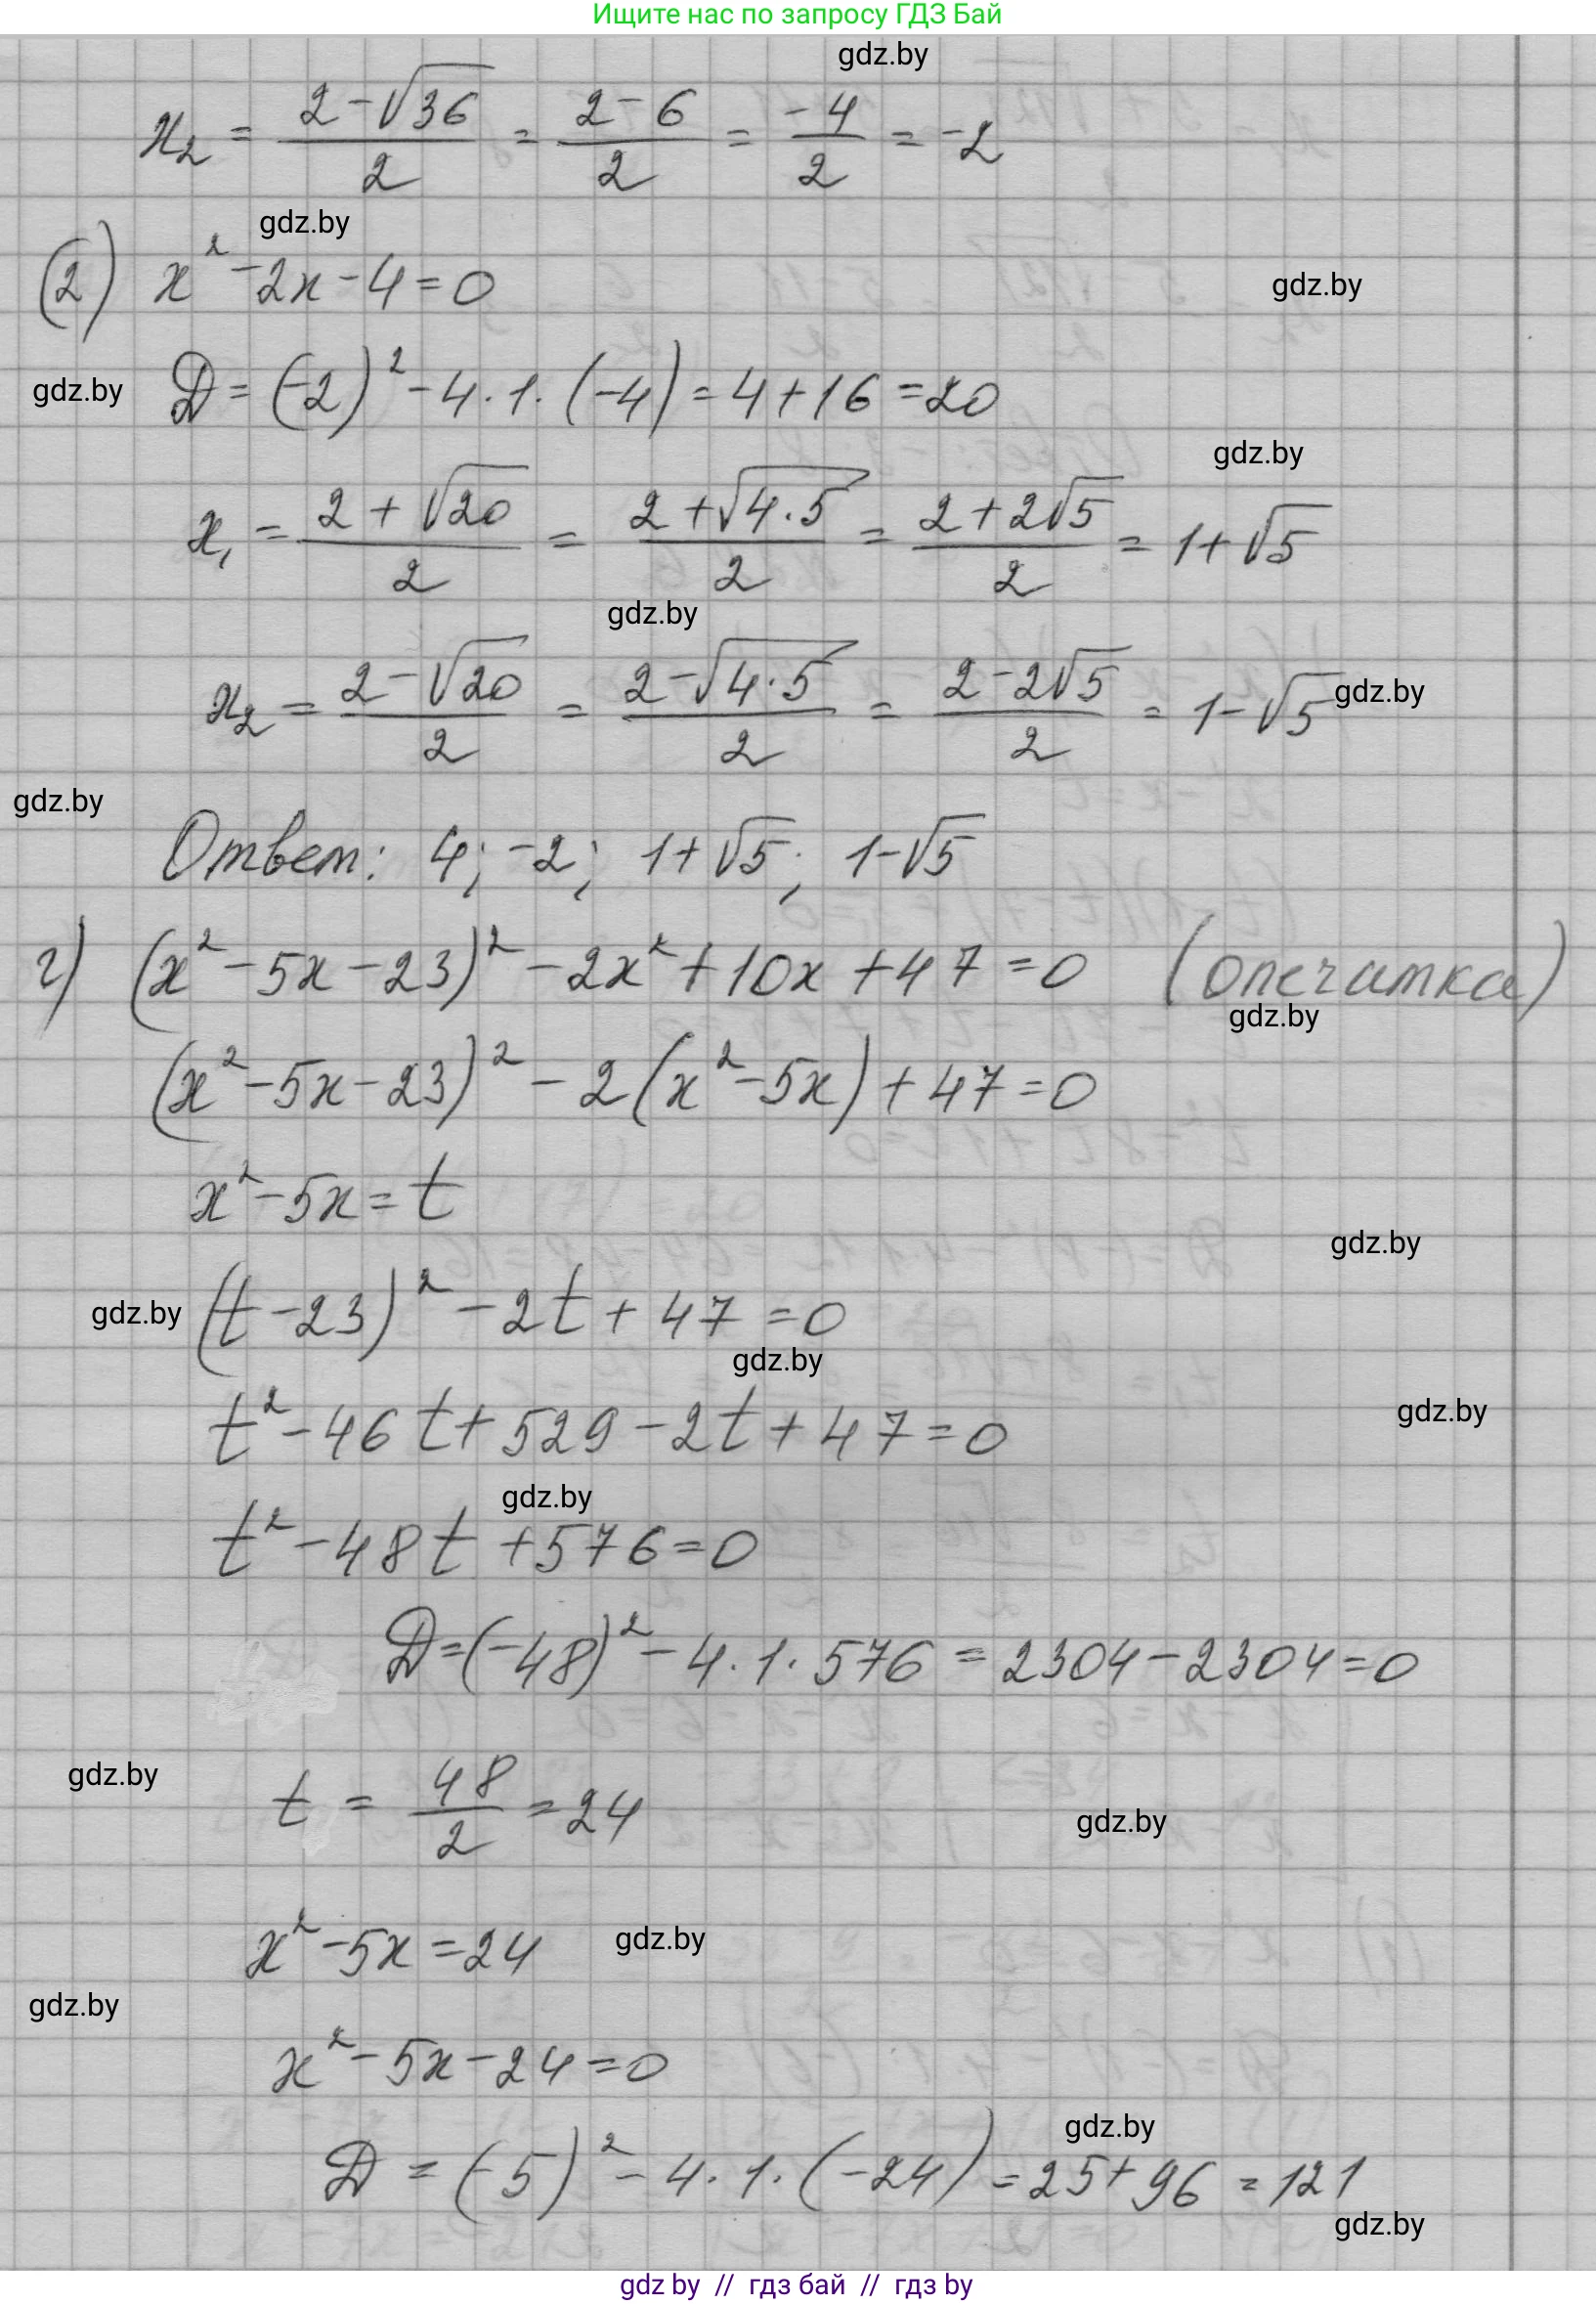 Ищите нас по запросу ГДЗ Бай
gdz.by
x₂ = (2-√36)/2 = (2-6)/2 = -4/2 = -2
gdz.by
(2) x²-2x-4=0
gdz.by
gdz.by
D = (-2)²-4·1·(-4) = 4+16 = 20
gdz.by
x₁ = (2+√20)/2 = (2+√(4·5))/2 = (2+2√5)/2 = 1+√5
gdz.by
x₂ = (2-√20)/2 = (2-√(4·5))/2 = (2-2√5)/2 = 1-√5
gdz.by
gdz.by
Ответ: 4; -2; 1+√5; 1-√5
г) (x²-5x-23)²-2x²+10x+47=0 (опечатка)
gdz.by
(x²-5x-23)²-2(x²-5x)+47=0
x²-5x=t
gdz.by
gdz.by
(t-23)²-2t+47=0
gdz.by
gdz.by
t²-46t+529-2t+47=0
gdz.by
t²-48t+576=0
D=(-48)²-4·1·576=2304-2304=0
gdz.by
t = 48/2 = 24
gdz.by
x²-5x=24
gdz.by
gdz.by
x²-5x-24=0
gdz.by
D = (-5)²-4·1·(-24) = 25+96 = 121
gdz.by
gdz by // гдз бай // гдз by